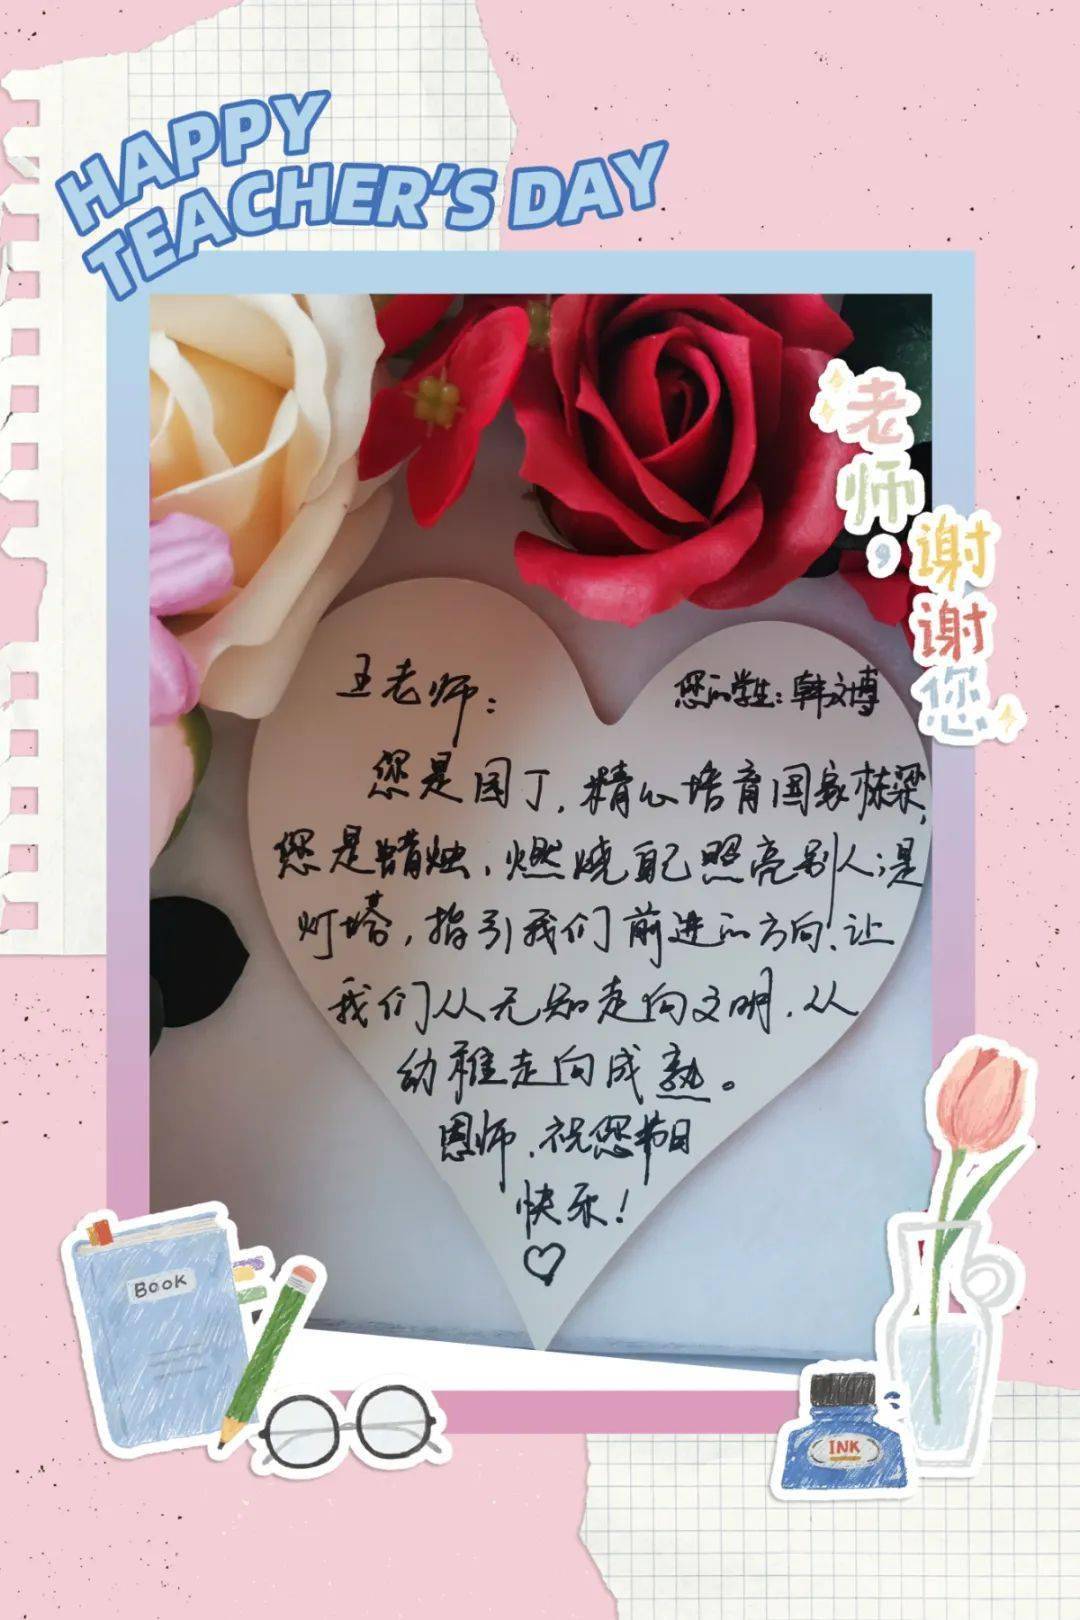 HAPPY
TEACHER'S DAY
老师,
谢谢您
王老师:
您的学生:韩文博
您是园丁,精心培育国家栋梁,
您是蜡烛,燃烧自己照亮别人;是
灯塔,指引我们前进的方向,让
我们从无知走向文明,从
幼稚走向成熟。
恩师,祝您节日
快乐!
BOOK
INK